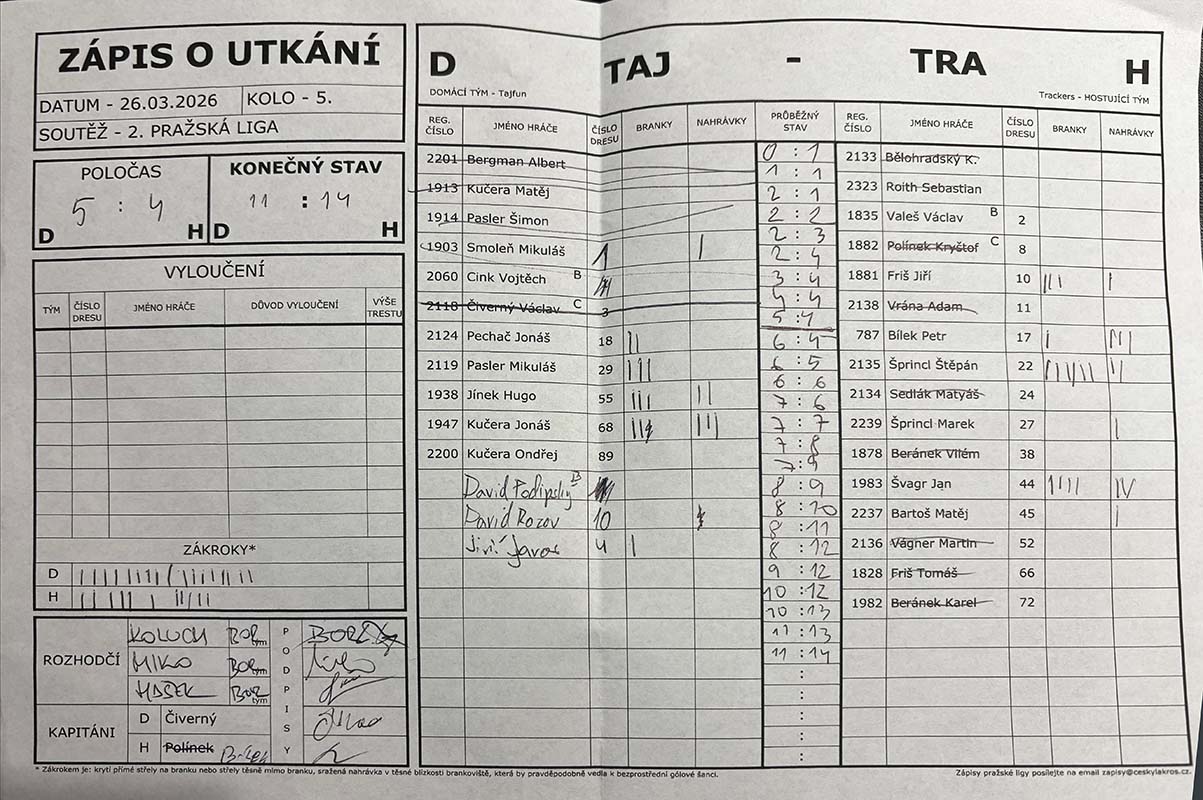 ZÁPIS O UTKÁNÍ
DATUM - 26.03.2026 KOLO - 5.
SOUTĚŽ - 2. PRAŽSKÁ LIGA
POLOČAS KONEČNÝ STAV
5 : 4 11 : 14
D H D H
VYLOUČENÍ
TÝM ČÍSLO DRESU JMÉNO HRÁČE DŮVOD VYLOUČENÍ VÝŠE TRESTU
ZÁKROKY*
D
H
ROZHODČÍ
KOLUCH BOR tým
MIKO BOR tým
HAŠEK BOR tým
PODPISY
KAPITÁNI
D Čiverný
H Polínek Bílek
D TAJ - TRA H
DOMÁCÍ TÝM - Tajfun Trackers - HOSTUJÍCÍ TÝM
REG. ČÍSLO JMÉNO HRÁČE ČÍSLO DRESU BRANKY NAHRÁVKY PRŮBĚŽNÝ STAV REG. ČÍSLO JMÉNO HRÁČE ČÍSLO DRESU BRANKY NAHRÁVKY
2201 Bergman Albert
1913 Kučera Matěj
1914 Pasler Šimon
1903 Smoleň Mikuláš 1 I
2060 Cink Vojtěch B
2118 Čiverný Václav C 3
2124 Pechač Jonáš 18 II
2119 Pasler Mikuláš 29 III
1938 Jínek Hugo 55 III II
1947 Kučera Jonáš 68 III III
2200 Kučera Ondřej 89
David Podipský B
David Rozov 10
Jiří 4 I
0 : 1
1 : 1
2 : 1
2 : 2
2 : 3
2 : 4
3 : 4
4 : 4
5 : 4
6 : 4
6 : 5
6 : 6
7 : 6
7 : 7
7 : 8
7 : 9
8 : 9
8 : 10
8 : 11
8 : 12
9 : 12
10 : 12
10 : 13
11 : 13
11 : 14
:
:
:
:
:
2133 Bělohradský K.
2323 Roith Sebastian
1835 Valeš Václav B 2
1882 Polínek Kryštof C 8
1881 Friš Jiří 10 III I
2138 Vrána Adam 11
787 Bílek Petr 17 I
2135 Šprincl Štěpán 22 II
2134 Sedlák Matyáš 24
2239 Šprincl Marek 27 I
1878 Beránek Vilém 38
1983 Švagr Jan 44 IIII
2237 Bartoš Matěj 45 I
2136 Vágner Martin 52
1828 Friš Tomáš 66
1982 Beránek Karel 72
* Zákrokem je: krytí přímé střely na branku nebo střely těsně mimo branku, sražená nahrávka v těsné blízkosti brankoviště, která by pravděpodobně vedla k bezprostřední gólové šanci.
Zápisy pražské ligy posílejte na email zapisy@ceskylakros.cz.